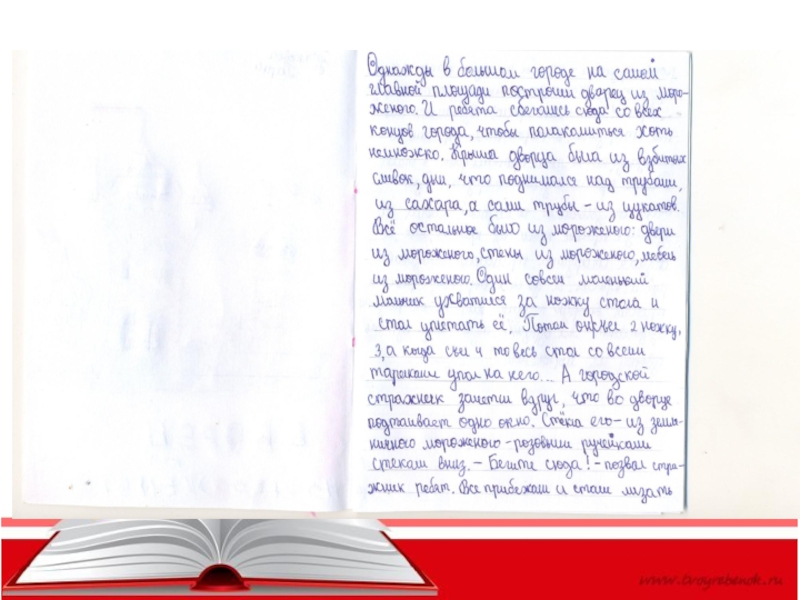 Однажды в большом городе на самой
главной площади построили дворец из моро-
женого. И ребята сбегались сюда со всех
концов города, чтобы полакомиться хоть
немножко. Крыша дворца была из взбитых
сливок, дым, что поднимался над трубами,
из сахара, а сами трубы - из цукатов.
Всё остальное было из мороженого: двери
из мороженого, стены из мороженого, мебель
из мороженого. Один совсем маленький
мальчик ухватился за ножку стола и
стал уплетать её. Потом он съел 2 ножку,
3, а когда съел 4 то весь стол со всеми
тарелками упал на него... А городской
стражник заметил вдруг, что во дворце
подтаивает одно окно. Стёкла его - из земля-
ничного мороженого - розовыми ручейками
стекали вниз. - Бегите сюда! - позвал стра-
жник ребят. Все прибежали и стали лизать
www.tvoyrebenok.ru